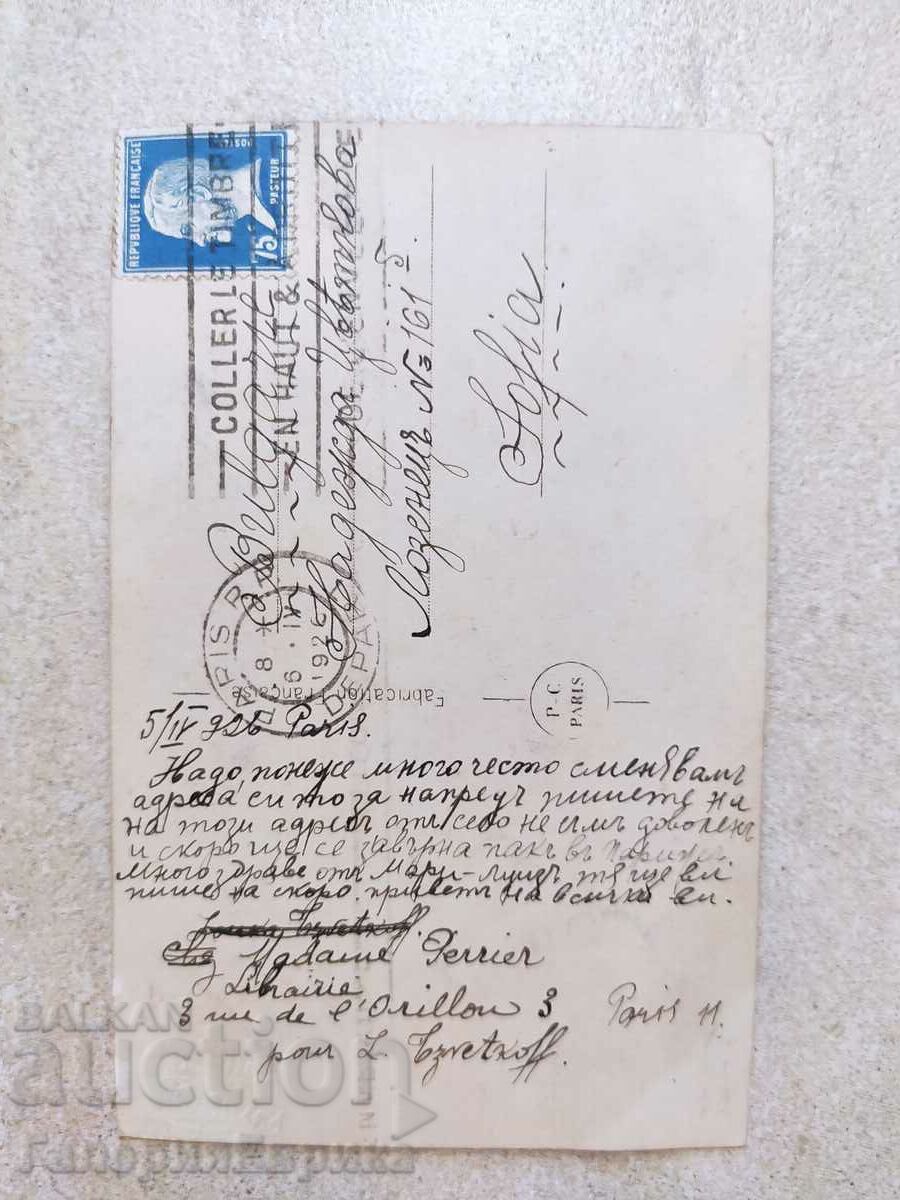 REPUBLIQUE FRANÇAISE
PASTEUR
75c
COLLER LE TIMBRE
EN HAUT &
PARIS
DEPART
6 IV
1926
Bulgarie
Надежда Цвѣткова
Лозенецъ № 161
Sofia
Fabrication Française
P. C.
PARIS
5/IV 926 Paris.
Надо, понеже много често сменявамъ
адреса си то за напредъ пишете ми
на този адресъ отъ село не съмъ доволенъ
и скоро ще се завърна пакъ въ Парижъ
много здраве отъ Мари-Луизъ тя ще ви
пише на скоро. приветъ на всички ви.
Tzvetkoff
Chez Madame Perrier
Librairie
3 rue de l'Orillon 3 Paris 11.
pour L. Tzvetkoff.
BALKAN
auction
ГалерияЕврика